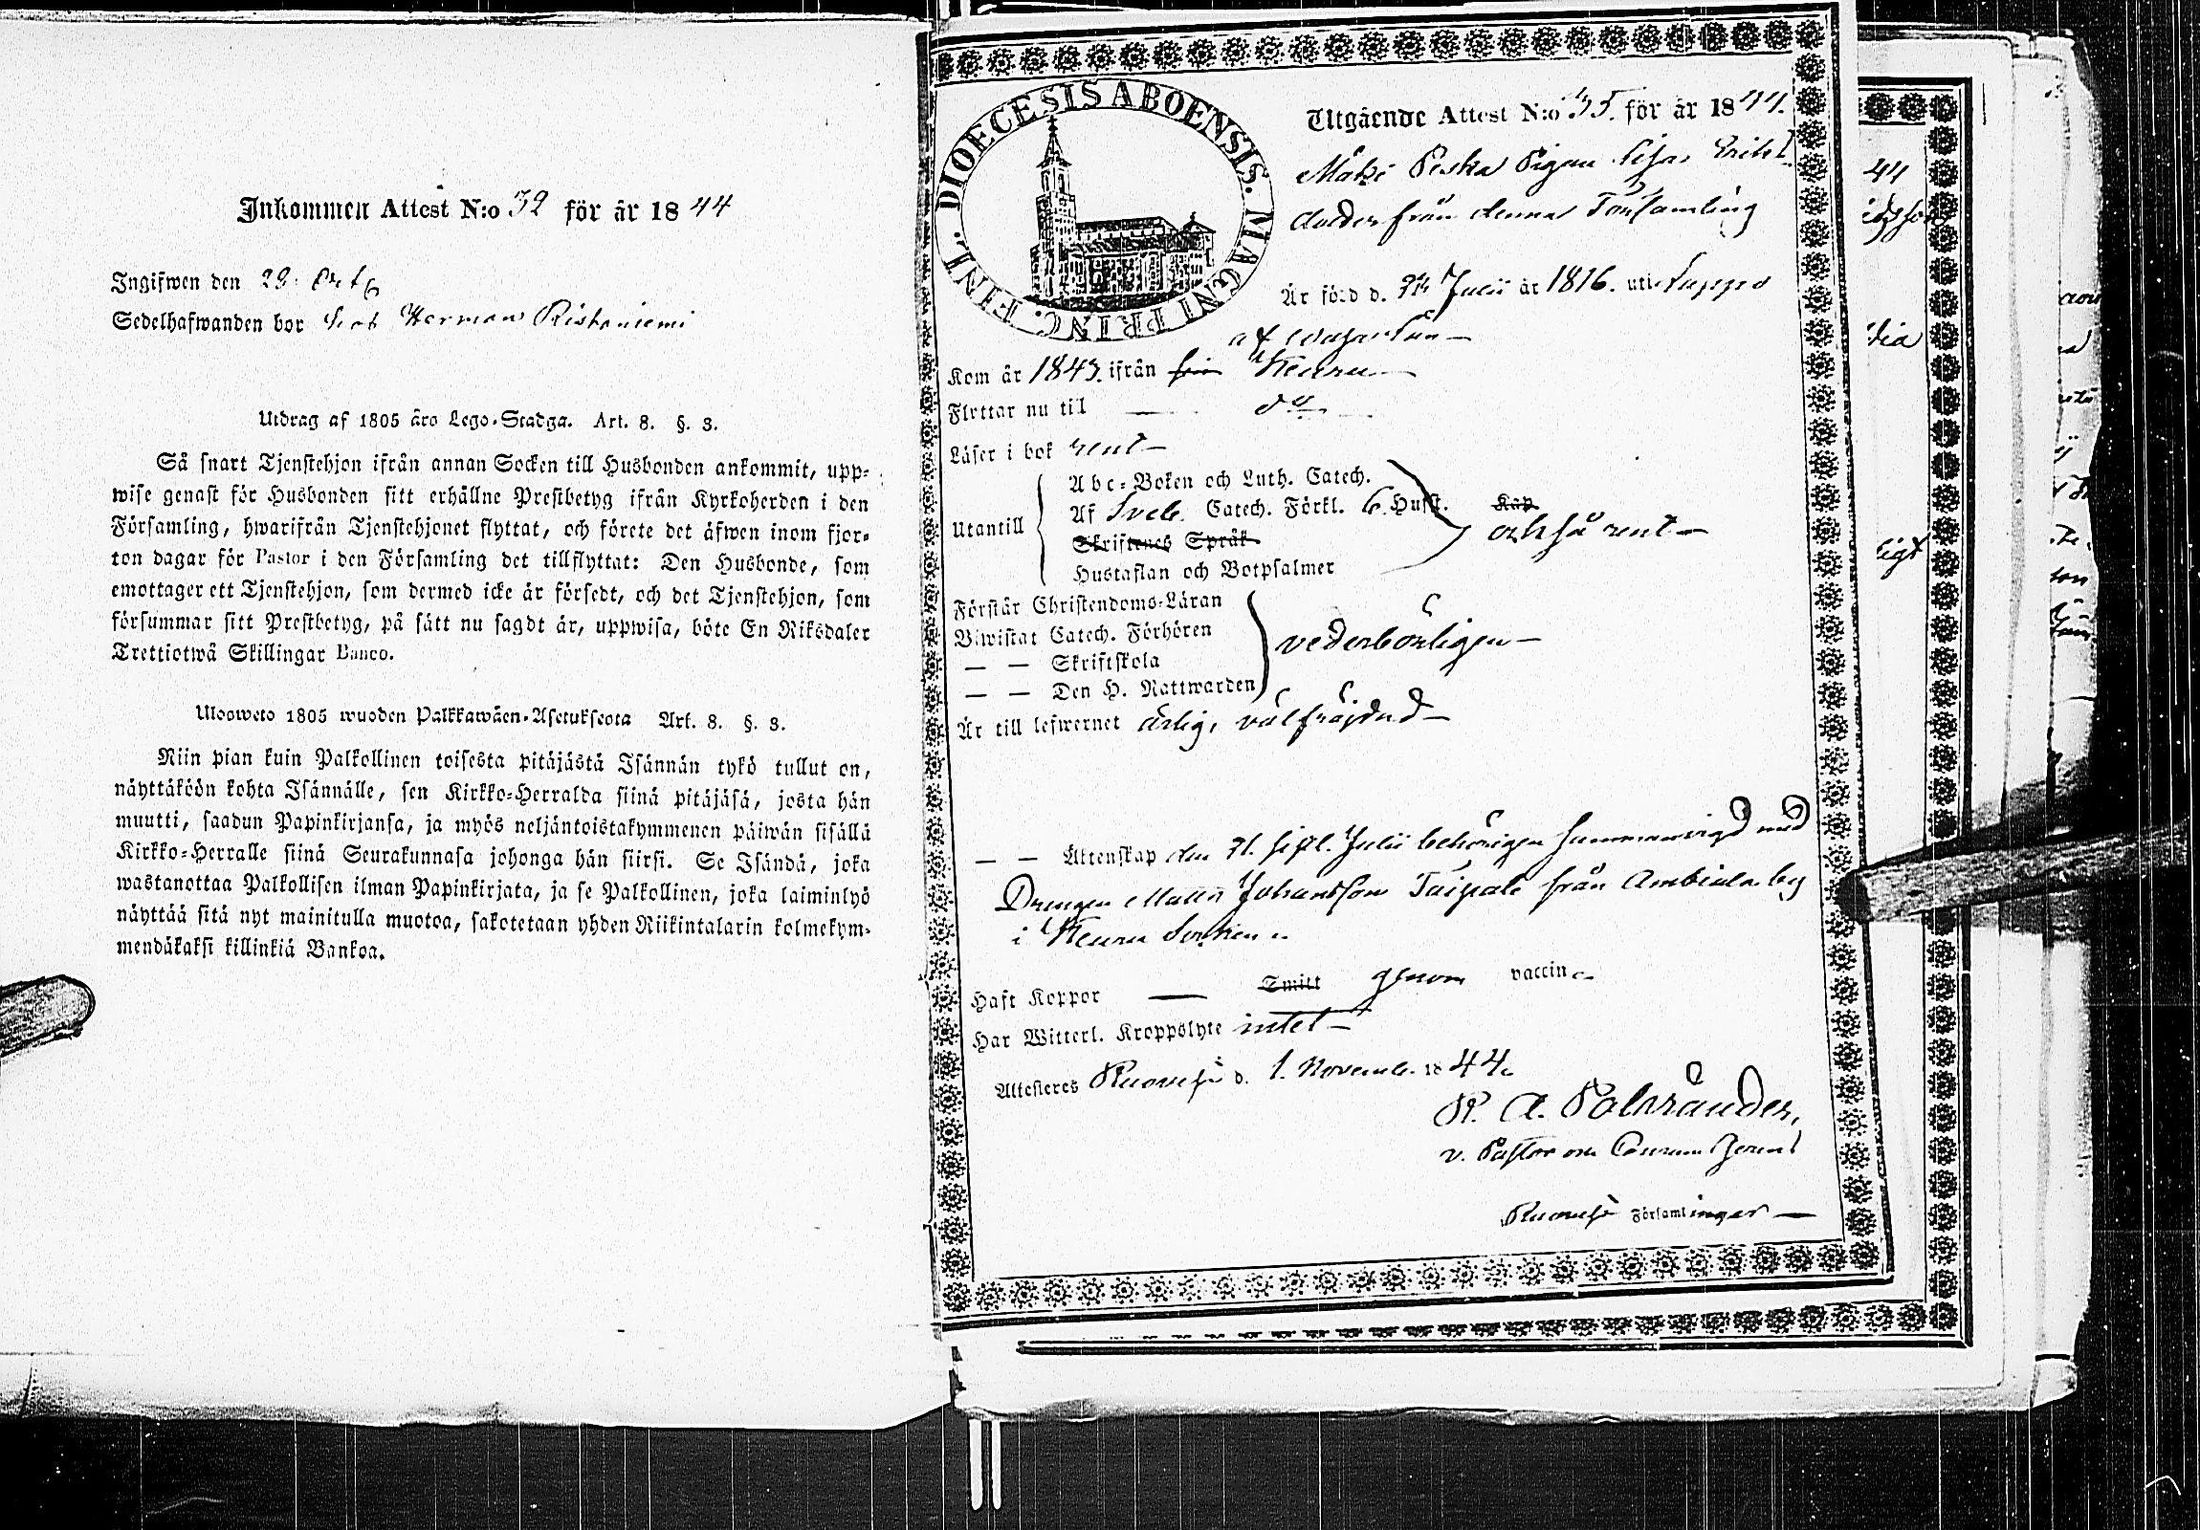 Inkommen Attest N:o 32 för år 1844
Ingifwen den 29.
Sedelhafwanden bor Herman Ristaniemi
Utdrag af 1805 års Lego-Stadga. Art. 8. §. 3.
Så snart Tjenstehjon ifrån annan Socken till Husbonden ankommit, upp-
wise genast för Husbonden sitt erhållne Prestbetyg ifrån Kyrkoherden i den
Församling, hwarifrån Tjenstehjonet flyttat, och förete det äfwen inom fjor-
ton dagar för Pastor i den Församling det tillflyttat: Den Husbonde, som
emottager ett Tjenstehjon, som dermed icke är försedt, och det Tjenstehjon, som
försummar sitt Prestbetyg, på sätt nu sagdt är, uppwisa, böte En Riksdaler
Trettiotwå Skillingar Banco.
Ulosweto 1805 wuoden Palkkawäen-Asetuksesta Art. 8. §. 3.
Niin pian kuin Palkollinen toisesta pitäjästä Isännän tykö tullut on,
näyttäköön kohta Isännälle, sen Kirkko-Herralda siinä pitäjäsä, josta hän
muutti, saadun Papinkirjansa, ja myös neljäntoistakymmenen päiwän sisällä
Kirkko-Herralle siinä Seurakunnasa johonga hän siirsi. Se Isändä, joka
wastanottaa Palkollisen ilman Papinkirjata, ja se Palkollinen, joka laiminlyö
näyttää sitä nyt mainitulla muotoa, sakotetaan yhden Riikintalarin kolmekym-
mendäkaksi killinkiä Bankoa.
DIOECESIS ABOENSIS. MAGNI PRINC. FINL.
Utgående Attest N:o 35. för år 1844.
Pigan Lisa Eriks
dotter från denna Församling
Är född d. Julii år 1816. uti
Kom år 1843. ifrån Keuru
Flyttar nu till do
Läser i bok rent
Utantill
Abc-Boken och Luth. Catech.
Af Sveb. Catech. Förkl. 6. Hufst. Käp
Skriftenes Språk också rent
Hustaflan och Botpsalmer
Förstår Christendoms-Läran
Biwistat Catech. Förhören vederbörligen
— — Skriftskola
— — Den H. Nattwarden
Är till lefwernet ärlig, välfräjdad
— — Äktenskap den 21. sistl. Julii behörigen sammanvigd med
Drengen Matts Johansson Taipale från Ambiala by
i Keuru Socken
Haft Koppor — Smitt genom vaccin
Har Witterl. Kroppslyte intet
Attesteres Ruovesi d. 1. Novemb. 1844.
v. Pastor
Ruovesi Församlingar